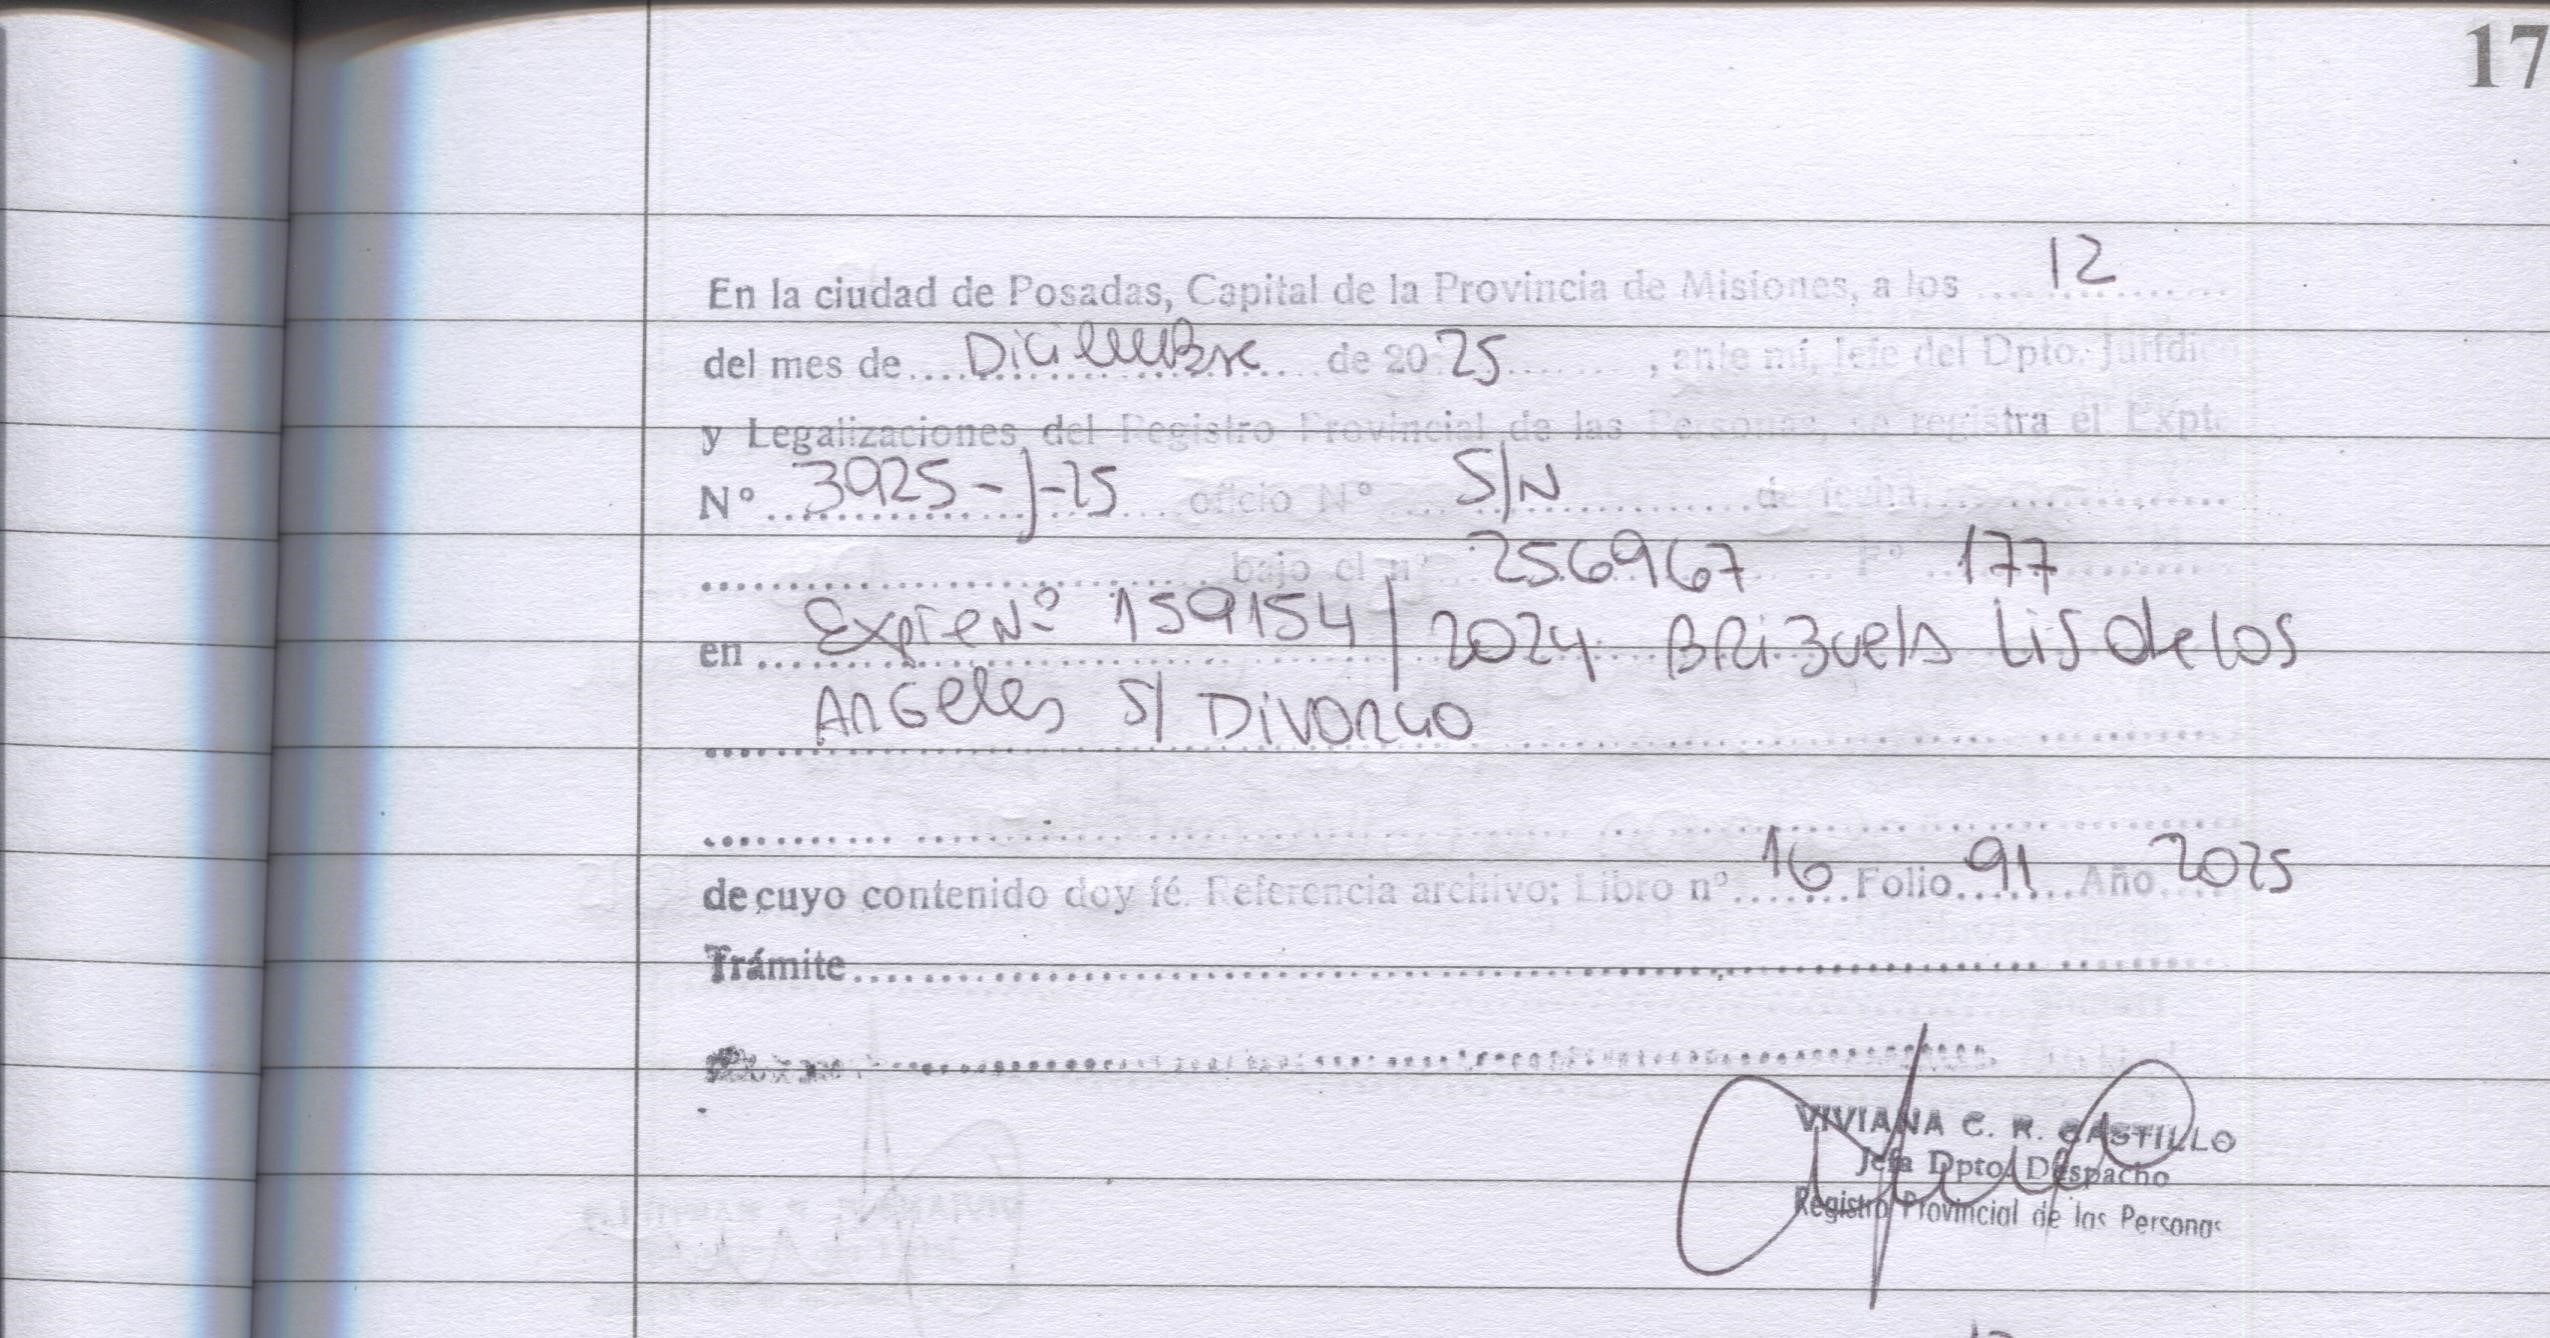 17
En la ciudad de Posadas, Capital de la Provincia de Misiones, a los 12
del mes de Diciembre de 2025, ante mí, Jefe del Dpto. Jurídi
y Legalizaciones del Registro Provincial de las Personas, se registra el Expte
N° 3925-J-25 oficio N° S/N de fecha
bajo el n° 256967 F° 177
en Expte N° 159154/2024 BRizuela Lis de los
Angeles S/ Divorcio
de cuyo contenido doy fé. Referencia archivo; Libro n° 16 Folio 91 Año 2025
Trámite
VIVIANA C. R. CASTILLO
Jefa Dpto. Despacho
Registro Provincial de las Personas